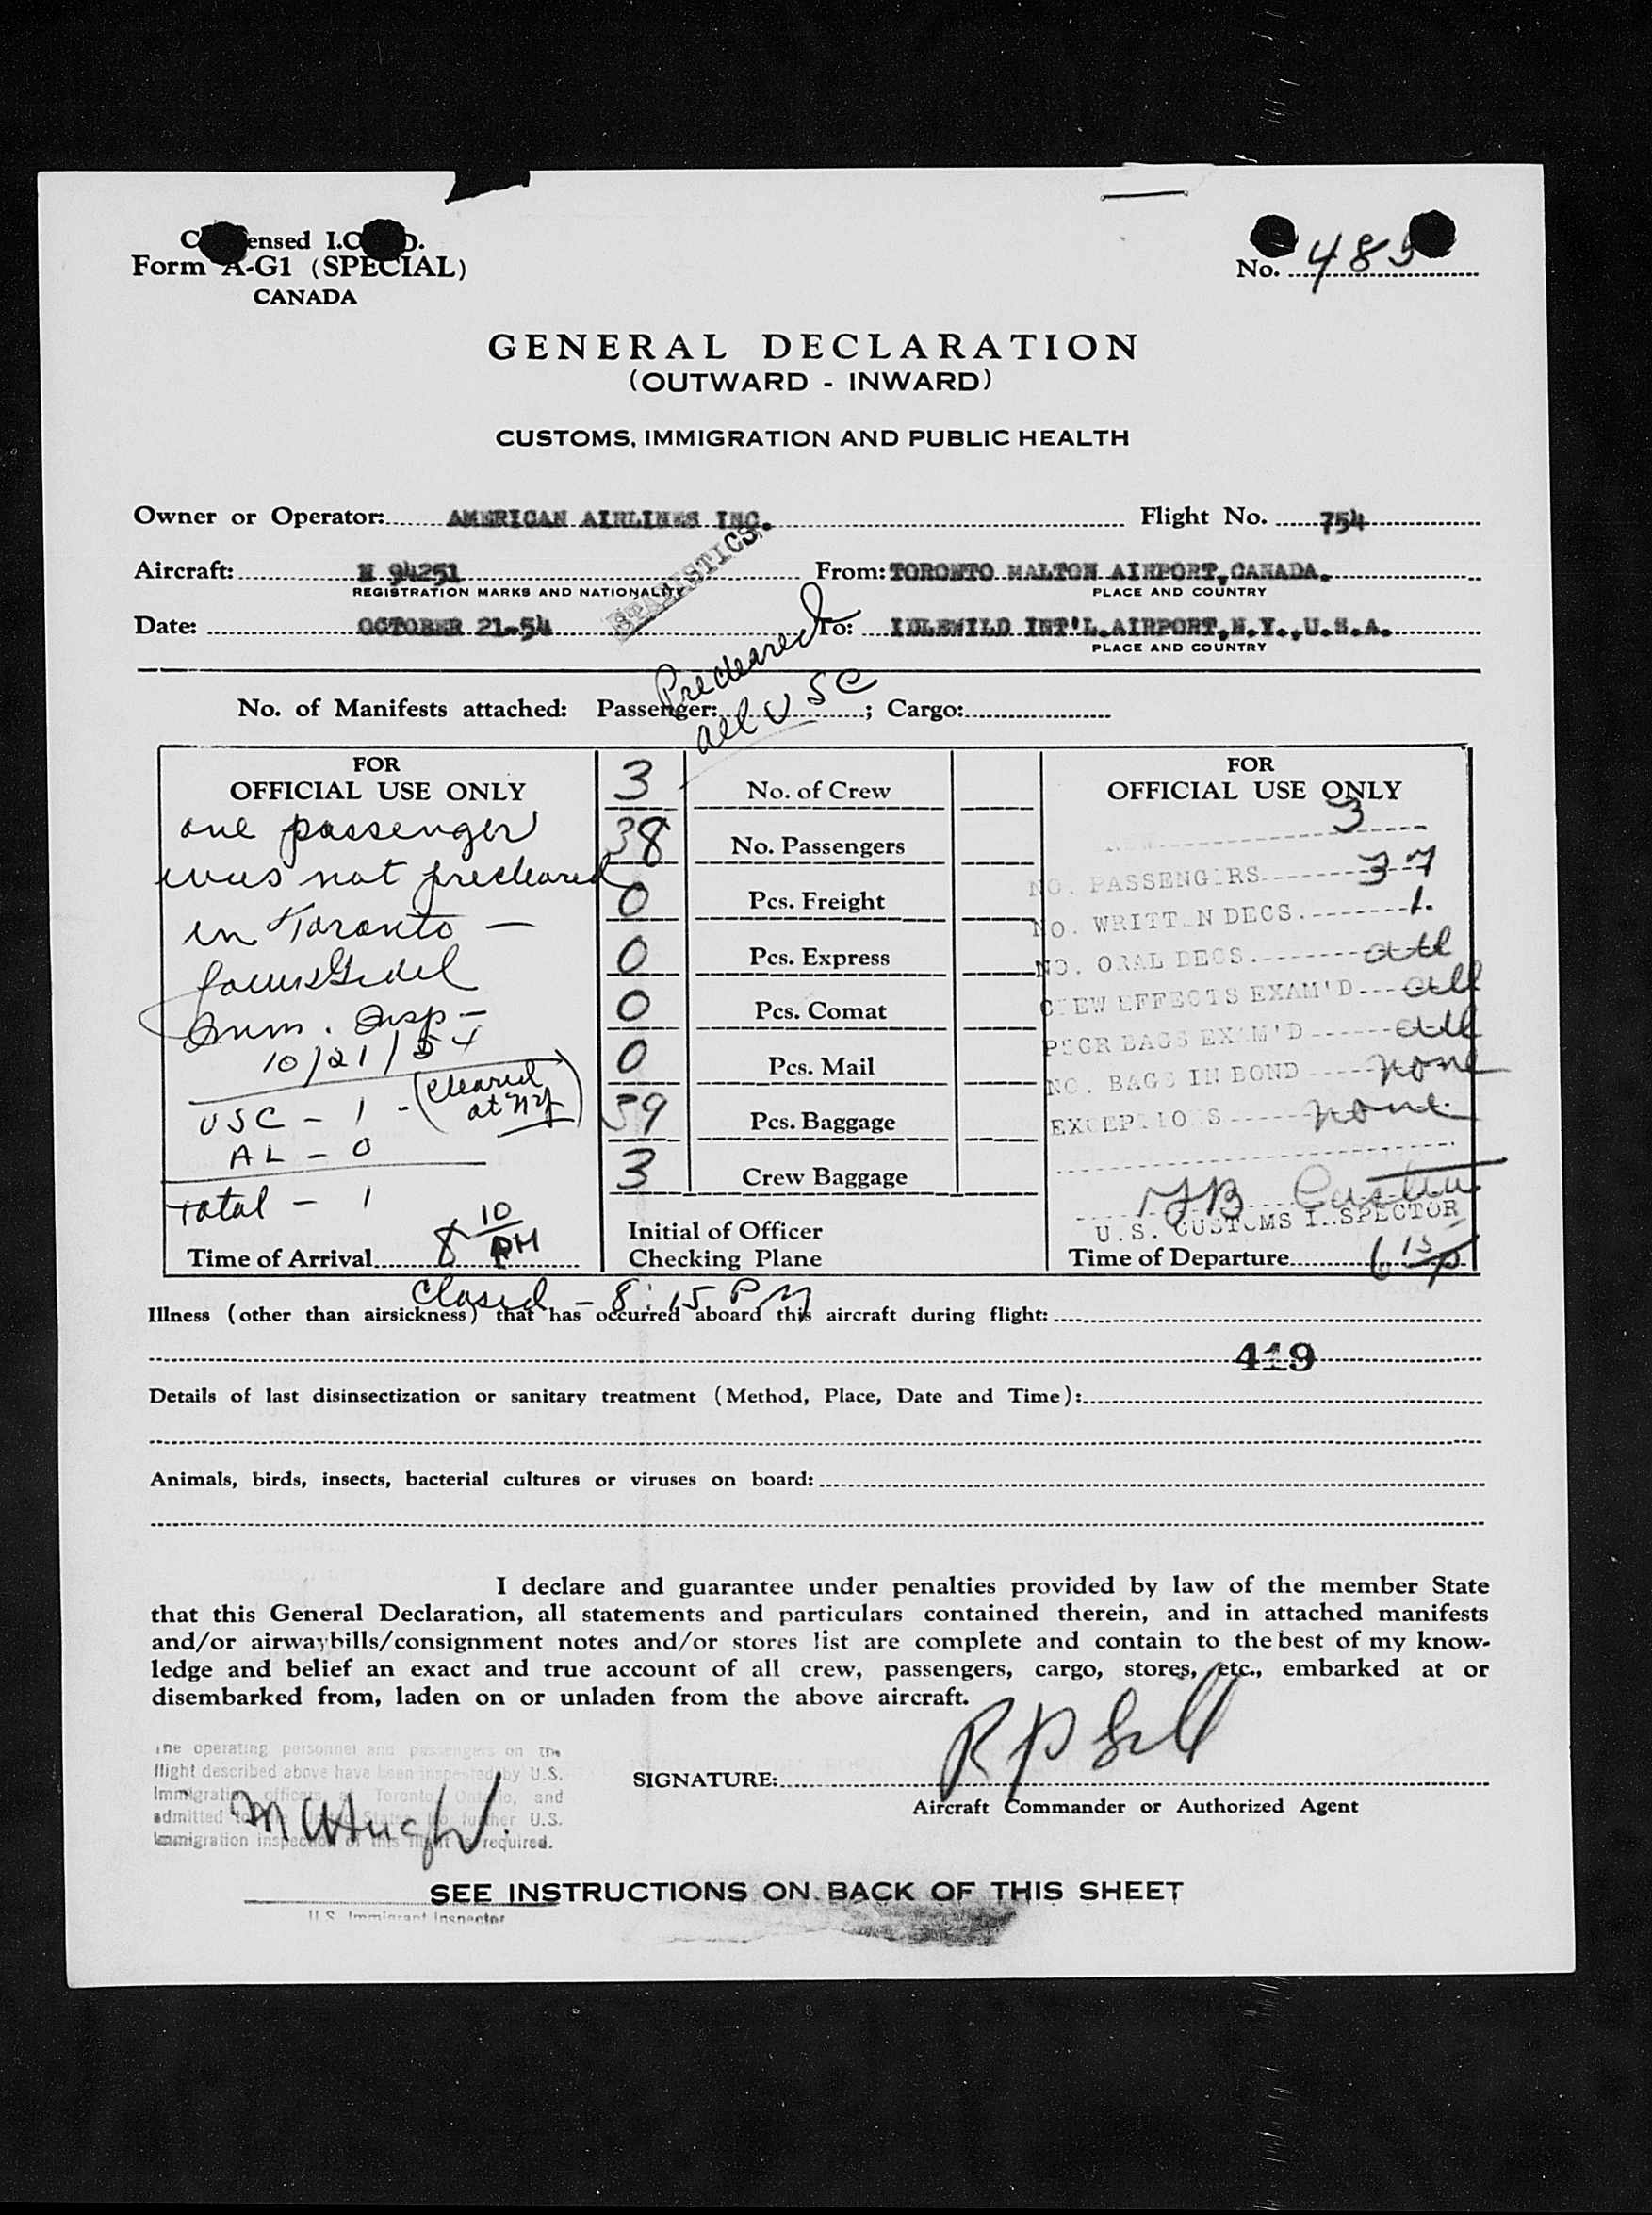 C ensed I.C D.
Form A-G1 (SPECIAL)
CANADA
No. 485
GENERAL DECLARATION
(OUTWARD - INWARD)
CUSTOMS, IMMIGRATION AND PUBLIC HEALTH
Owner or Operator: AMERICAN AIRLINES INC. Flight No. 754
Aircraft: N 94251 From: TORONTO MALTON AIRPORT, CANADA.
REGISTRATION MARKS AND NATIONALITY PLACE AND COUNTRY
STATISTICS
Date: OCTOBER 21-54 To: IDLEWILD INT'L. AIRPORT, N.Y., U.S.A.
PLACE AND COUNTRY
Precleared
all USC
No. of Manifests attached: Passenger: ; Cargo:
FOR
OFFICIAL USE ONLY
one passenger
was not precleared
in Toronto —
Imm. Insp —
10/21/54
USC - 1 - (Cleared at NY)
AL - 0
Total - 1
Time of Arrival 8 10 PM
3 No. of Crew
38 No. Passengers
0 Pcs. Freight
0 Pcs. Express
0 Pcs. Comat
0 Pcs. Mail
39 Pcs. Baggage
3 Crew Baggage
Initial of Officer
Checking Plane
FOR
OFFICIAL USE ONLY
3
NO. PASSENGERS 37
NO. WRITTEN DECS. 1.
NO. ORAL DECS. all
CREW EFFECTS EXAM'D all
PSGR BAGS EXAM'D all
NO. BAGS IN BOND none
EXCEPTIONS none
U.S. CUSTOMS INSPECTOR
Time of Departure 6 15 p
Closed - 8:15 PM
Illness (other than airsickness) that has occurred aboard this aircraft during flight:
419
Details of last disinsectization or sanitary treatment (Method, Place, Date and Time):
Animals, birds, insects, bacterial cultures or viruses on board:
I declare and guarantee under penalties provided by law of the member State
that this General Declaration, all statements and particulars contained therein, and in attached manifests
and/or airwaybills/consignment notes and/or stores list are complete and contain to the best of my know-
ledge and belief an exact and true account of all crew, passengers, cargo, stores, etc., embarked at or
disembarked from, laden on or unladen from the above aircraft.
The operating personnel and passengers on the
flight described above have been inspected by U.S.
Immigration officers at Toronto, Ontario, and
admitted to the United States. No further U.S.
Immigration inspection of this flight is required.
SIGNATURE:
Aircraft Commander or Authorized Agent
SEE INSTRUCTIONS ON BACK OF THIS SHEET
U.S. Immigrant Inspector